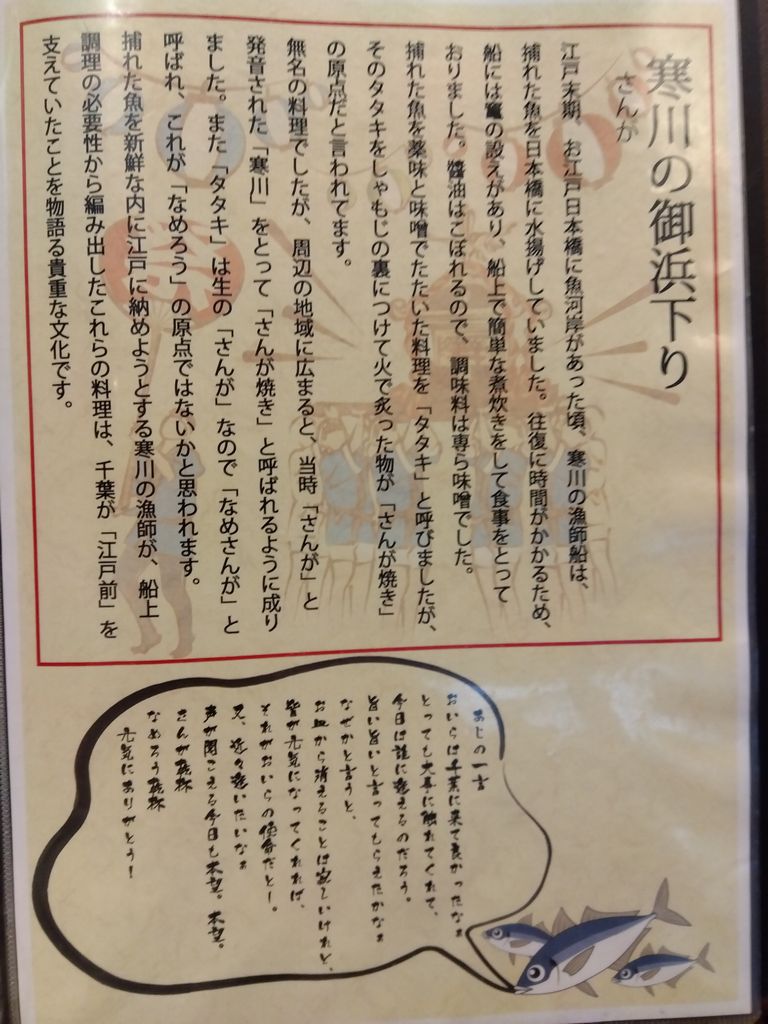 寒川の御浜下り
さんが
江戸末期、お江戸日本橋に魚河岸があった頃、寒川の漁師船は、
捕れた魚を日本橋に水揚げしていました。往復に時間がかかるため、
船には竃の設えがあり、船上で簡単な煮炊きをして食事をとって
おりました。醤油はこぼれるので、調味料は専ら味噌でした。
捕れた魚を薬味と味噌でたたいた料理を「タタキ」と呼びましたが、
そのタタキをしゃもじの裏につけて火で炙った物が「さんが焼き」
の原点だと言われてます。
無名の料理でしたが、周辺の地域に広まると、当時「さんが」と
発音された「寒川」をとって「さんが焼き」と呼ばれるように成り
ました。また「タタキ」は生の「さんが」なので「なめさんが」と
呼ばれ、これが「なめろう」の原点ではないかと思われます。
捕れた魚を新鮮な内に江戸に納めようとする寒川の漁師が、船上
調理の必要性から編み出したこれらの料理は、千葉が「江戸前」を
支えていたことを物語る貴重な文化です。
あじの一言
おいらは千葉に来て良かったなぁ
とっても大事に触れてくれて、
今日は誰に逢えるのだろう。
旨い旨いと言ってもらえたかなぁ
なぜかと言うと、
お皿から消えることは寂しいけれど、
皆が元気になってくれれば、
それがおいらの使命だとー。
又、近々逢いたいなぁ
声が聞こえる今日も本望。本望。
さんが乾杯
なめろう乾杯
元気にありがとう！